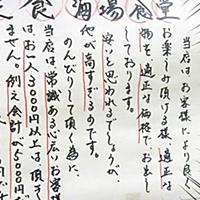 食 酒場食堂
当店は、お客様により良く
お楽しみ頂ける様、適正な
物を適正な価格でお出し
しております。
安いと思われるでしょうが、
他が高すぎるのです。
のんびりして頂く為に、
当店は常識ある心広いお客様
は、お一人3000円以上は、頂き
ません。例え会計が5000円で